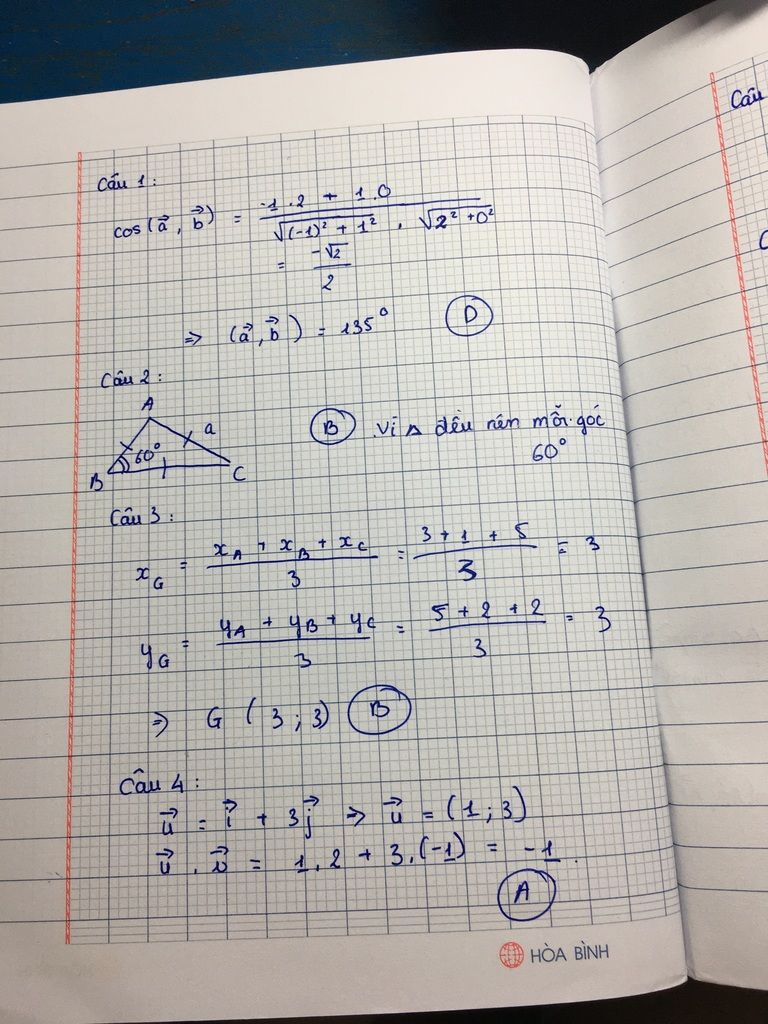 Câu 1:
cos(a⃗, b⃗) = (-1.2 + 1.0) / (√((-1)² + 1²) . √(2² + 0²))
= -√2 / 2
=> (a⃗, b⃗) = 135° D
Câu 2:
A
a
60°
B C
B vì Δ đều nên mỗi góc
60°
Câu 3:
x_G = (x_A + x_B + x_C) / 3 = (3 + 1 + 5) / 3 = 3
y_G = (y_A + y_B + y_C) / 3 = (5 + 2 + 2) / 3 = 3
=> G (3; 3) B
Câu 4:
u⃗ = i⃗ + 3j⃗ => u⃗ = (1; 3)
u⃗ . v⃗ = 1.2 + 3.(-1) = -1.
A
HÒA BÌNH
Câu